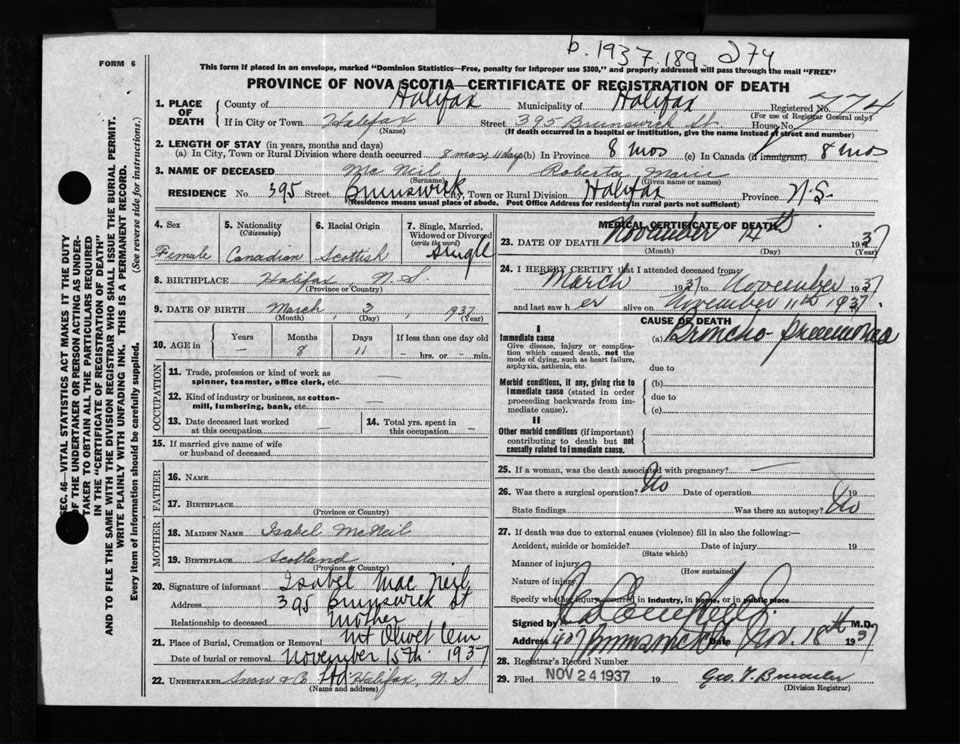 b. 1937. 189. 274
FORM 6
This form if placed in an envelope, marked "Dominion Statistics—Free, penalty for improper use $300," and properly addressed will pass through the mail "FREE"
PROVINCE OF NOVA SCOTIA—CERTIFICATE OF REGISTRATION OF DEATH
1. PLACE OF DEATH County of Halifax Municipality of Halifax Registered No. 774
(For use of Registrar General only)
If in City or Town Halifax Street 395 Brunswick St. House No.
(Name) (If death occurred in a hospital or institution, give the name instead of street and number)
2. LENGTH OF STAY (in years, months and days)
(a) In City, Town or Rural Division where death occurred 8 mos, 11 days (b) In Province 8 mos (c) In Canada (if immigrant) 8 mos
3. NAME OF DECEASED Mc Neil Roberta Marie
(Surname) (Given name or names)
RESIDENCE No. 395 Street Brunswick City, Town or Rural Division Halifax Province N.S.
(Residence means usual place of abode. Post Office Address for residents in rural parts not sufficient)
4. Sex 5. Nationality (Citizenship) 6. Racial Origin 7. Single, Married, Widowed or Divorced (write the word)
Female Canadian Scottish Single
8. BIRTHPLACE Halifax, N.S
(Province or Country)
9. DATE OF BIRTH March 3 1937
(Month) (Day) (Year)
10. AGE in Years Months Days If less than one day old
— 8 11 — hrs. or — min.
OCCUPATION
11. Trade, profession or kind of work as spinner, teamster, office clerk, etc. —
12. Kind of industry or business, as cotton-mill, lumbering, bank, etc. —
13. Date deceased last worked at this occupation — 14. Total yrs. spent in this occupation —
15. If married give name of wife or husband of deceased
FATHER
16. NAME
17. BIRTHPLACE
(Province or Country)
MOTHER
18. MAIDEN NAME Isabel McNeil
19. BIRTHPLACE Scotland
(Province or Country)
20. Signature of informant Isabel Mac Neil
Address 395 Brunswick St
Relationship to deceased Mother
21. Place of Burial, Cremation or Removal Mt Olivet Cem
Date of burial or removal November 15th 1937
22. UNDERTAKER Snow & Co. Ltd Halifax, N.S
(Name and address)
MEDICAL CERTIFICATE OF DEATH
23. DATE OF DEATH November 14th 1937
(Month) (Day) (Year)
24. I HEREBY CERTIFY that I attended deceased from:
March 1937 to November 1937
and last saw her alive on November 11th 1937.
CAUSE OF DEATH
I
Immediate cause (a) Broncho pneumonia
Give disease, injury or complication which caused death, not the mode of dying, such as heart failure, asphyxia, asthenia, etc.
due to
Morbid conditions, if any, giving rise to immediate cause (stated in order proceeding backwards from immediate cause).
(b)
due to
(c)
II
Other morbid conditions (if important) contributing to death but not causally related to immediate cause.
25. If a woman, was the death associated with pregnancy? —
26. Was there a surgical operation? No Date of operation 19
State findings Was there an autopsy? No
27. If death was due to external causes (violence) fill in also the following:—
Accident, suicide or homicide? Date of injury 19
(State which)
Manner of injury
(How sustained)
Nature of injury
Specify whether injury occurred in industry, in home, or in public place
Signed by M.D.
Address 407 Brunswick St Date Nov. 18th 1937
28. Registrar's Record Number
29. Filed NOV 24 1937 19 Geo. T.
(Division Registrar)
SEC. 46—VITAL STATISTICS ACT MAKES IT THE DUTY
OF THE UNDERTAKER OR PERSON ACTING AS UNDER-
TAKER TO OBTAIN ALL THE PARTICULARS REQUIRED
IN THE "CERTIFICATE OF REGISTRATION OF DEATH"
AND TO FILE THE SAME WITH THE DIVISION REGISTRAR WHO SHALL ISSUE THE BURIAL PERMIT.
WRITE PLAINLY WITH UNFADING INK. THIS IS A PERMANENT RECORD.
Every item of information should be carefully supplied. (See reverse side for instructions.)